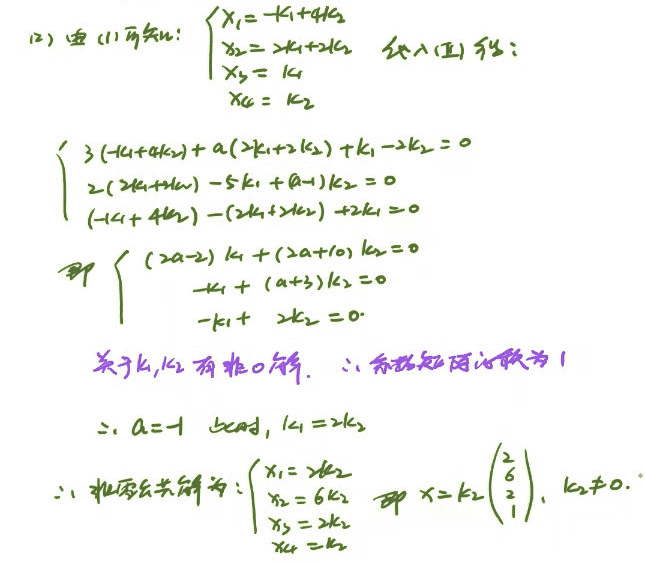 (2) 由(1)可知: { x₁=-k₁+4k₂
x₂=2k₁+2k₂ 代入(Ⅱ)得:
x₃=k₁
x₄=k₂
{ 3(-k₁+4k₂)+a(2k₁+2k₂)+k₁-2k₂=0
2(2k₁+2k₂)-5k₁+(a-1)k₂=0
(-k₁+4k₂)-(2k₁+2k₂)+2k₁=0
即 { (2a-2)k₁+(2a+10)k₂=0
-k₁+(a+3)k₂=0
-k₁+2k₂=0.
关于k₁,k₂有非0解. ∴系数矩阵的秩为1
∴ a=-1 此时, k₁=2k₂
∴ 非零公共解为: { x₁=2k₂
x₂=6k₂ 即 x=k₂(2 6 2 1), k₂≠0.
x₃=2k₂
x₄=k₂